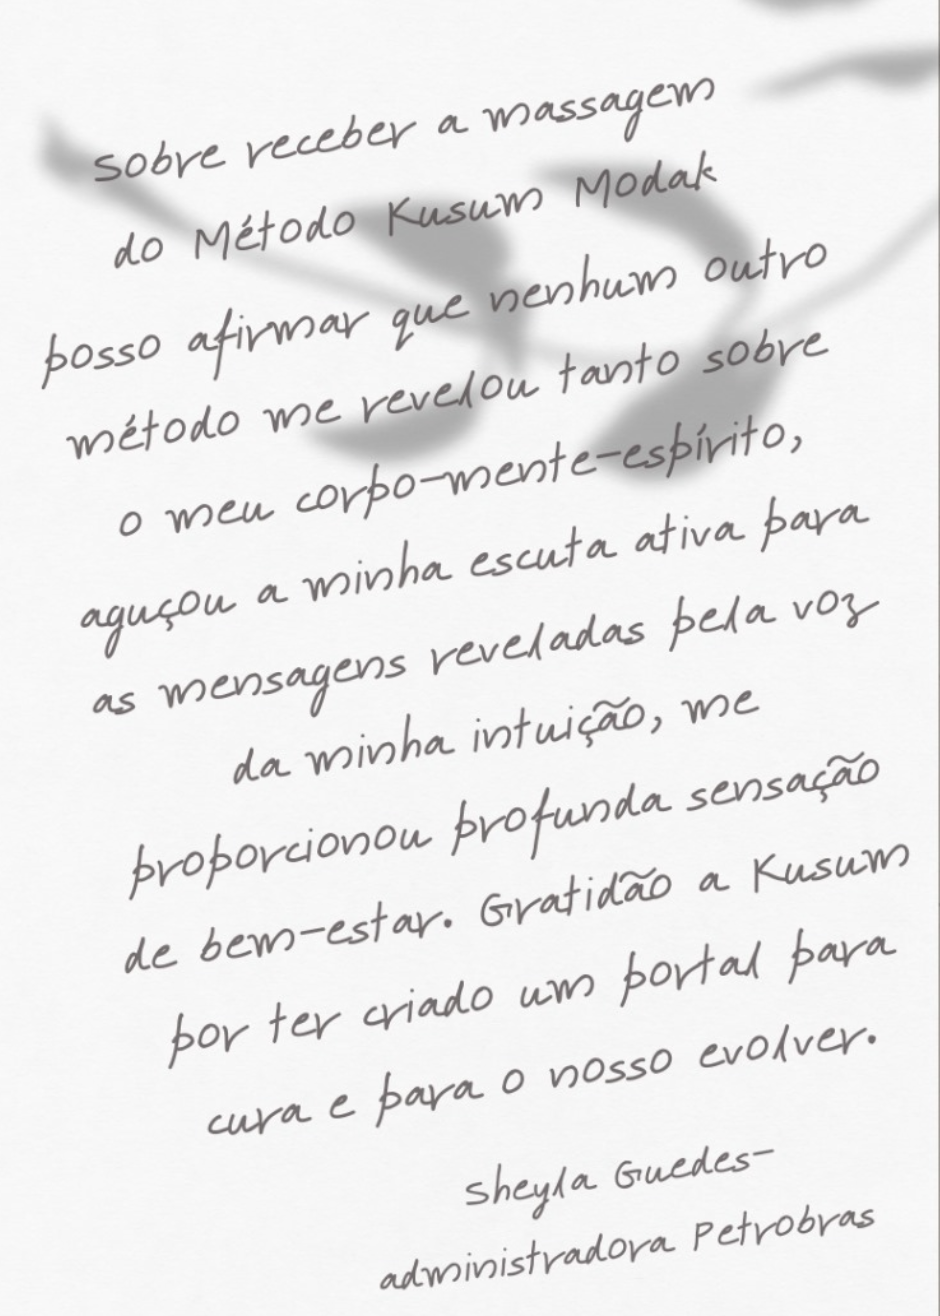 sobre receber a massagem
do Método Kusum Modak
posso afirmar que nenhum outro
método me revelou tanto sobre
o meu corpo-mente-espírito,
aguçou a minha escuta ativa para
as mensagens reveladas pela voz
da minha intuição, me
proporcionou profunda sensação
de bem-estar. Gratidão a Kusum
por ter criado um portal para
cura e para o nosso evolver.
Sheyla Guedes-
administradora Petrobras